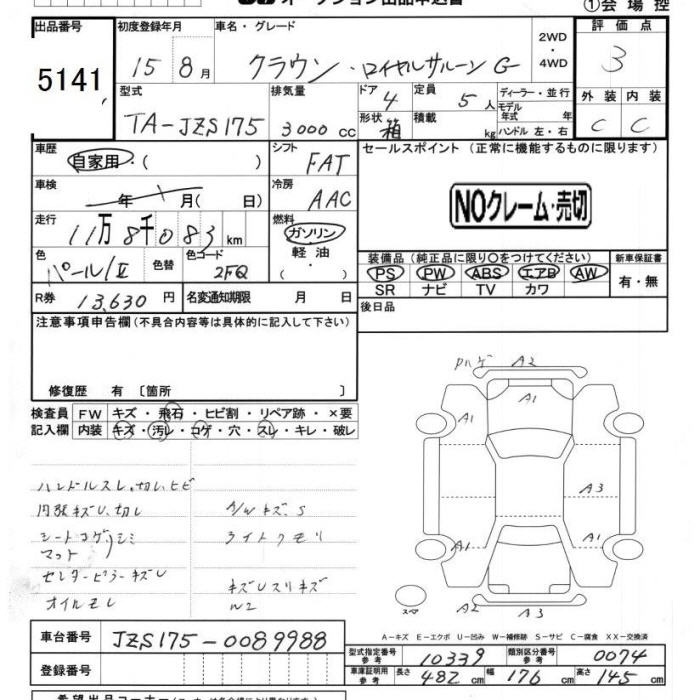 オークション出品申込書
①会場控
出品番号 初度登録年月 車名・グレード 2WD ・4WD 評価点
5141 15年 8月 クラウン・ロイヤルサルーンG 3
型式 排気量 ドア 4 定員 5人 ディーラー・並行 外装 内装
モデル年式 年
TA-JZS175 3000cc 形状 箱 積載 kg ハンドル 左・右 C C
車歴 自家用・( ) シフト FAT セールスポイント(正常に機能するものに限ります)
車検 年 月(日) 冷房 AAC
NOクレーム・売切
走行 11万8千083km 燃料 ガソリン・軽油・( )
色 パール/II 色替 色コード 2FQ
装備品(純正品に限り○をつけてください) 新車保証書
PS PW ABS エアB AW 有・無
SR ナビ TV カワ
R券 13,630円 名変通知期限 月 日 後日品
注意事項申告欄(不具合内容等は具体的に記入して下さい)
修復歴 有〔箇所 〕
検査員 FW キズ・飛石・ヒビ割・リペア跡・×要
記入欄 内装 キズ・汚レ・コゲ・穴・スレ・キレ・破レ
ハンドルスレ、切レ、ヒビ
内張キズU、切レ A/Wキズ、S
シートコゲ、シミ ライトクモリ
マット
センターピラーキズU
キズUスリキズ
オイルモレ W2
A2
A1
A1
A3
A1 A1
スペ A2 A3
A-キズ E-エクボ U-凹み W-補修跡 S-サビ C-腐食 XX-交換済
車台番号 JZS175-0089988
型式指定番号 参考 10339 類別区分番号 参考 0074
登録番号 車庫証明用 参考 長さ 482cm 幅 176cm 高さ 145cm
希望出品コーナー